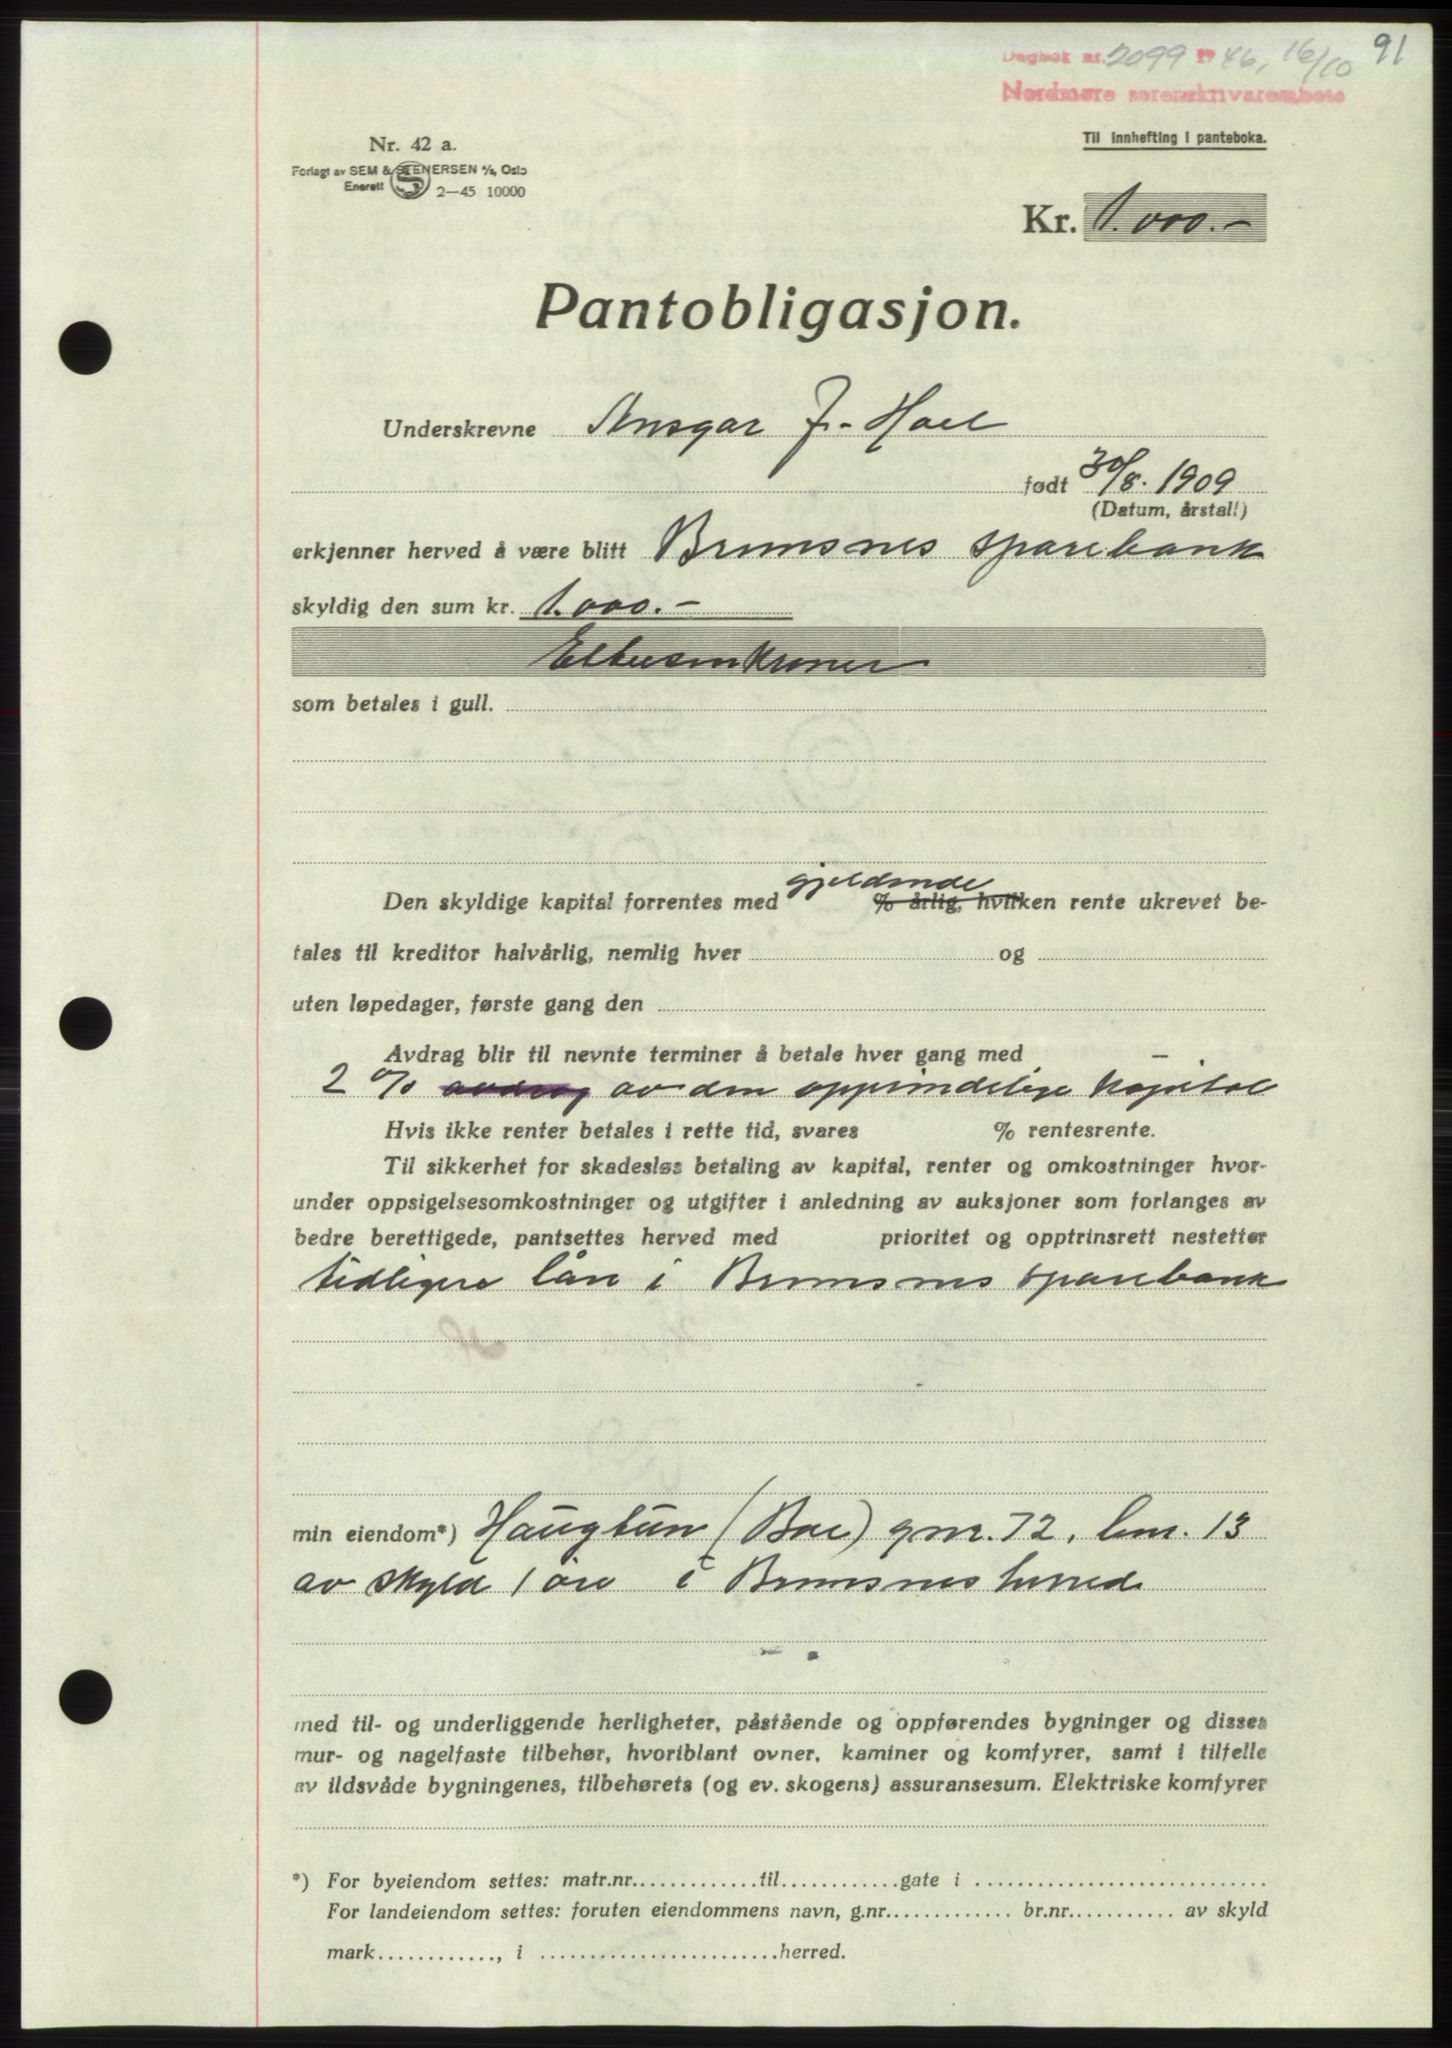 91
Dagbok nr. 2099 19 46, 16/10
Nordmøre sorenskriverembete
Nr. 42 a.
Til innhefting i panteboka.
Forlagt av SEM & STENERSEN A/S, Oslo
Enerett 2—45 10000
Kr. 1.000.-
Pantobligasjon.
Underskrevne Ansgar J. Hoel
født 30/8. 1909
(Datum, årstall)
erkjenner herved å være blitt Bremsnes sparebank
skyldig den sum kr. 1.000.-
Ettusenkroner
som betales i gull.
gjeldende
Den skyldige kapital forrentes med % årlig, hvilken rente ukrevet be-
tales til kreditor halvårlig, nemlig hver og
uten løpedager, første gang den
Avdrag blir til nevnte terminer å betale hver gang med —
2 % avdrag av den opprindelige kapital
Hvis ikke renter betales i rette tid, svares % rentesrente.
Til sikkerhet for skadesløs betaling av kapital, renter og omkostninger hvor-
under oppsigelsesomkostninger og utgifter i anledning av auksjoner som forlanges av
bedre berettigede, pantsettes herved med prioritet og opptrinsrett nestetter
tidligere lån i Bremsnes sparebank
min eiendom*) Haugtun (Boe) gnr. 72, bnr. 13
av skyld 1 øre i Bremsnes herred
med til- og underliggende herligheter, påstående og oppførendes bygninger og disses
mur- og nagelfaste tilbehør, hvoriblant ovner, kaminer og komfyrer, samt i tilfelle
av ildsvåde bygningenes, tilbehørets (og ev. skogens) assuransesum. Elektriske komfyrer
*) For byeiendom settes: matr.nr.............til.............gate i .............................
For landeiendom settes: foruten eiendommens navn, g.nr............. br.nr........... av skyld
mark............, i ........................herred.